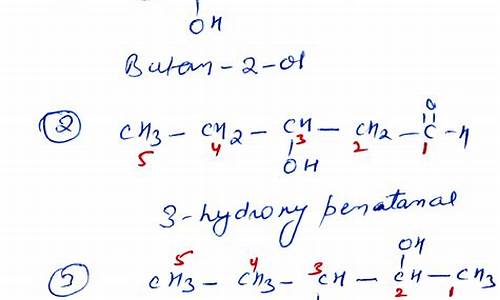 OH
Butan-2-ol
O
(2) CH3 - CH2 - CH - CH2 - C - H
5 4 3 2 1
OH
3-hydroxy penatanal
OH
(3) CH3 - CH3 - CH - CH - CH3
5 4 3 2 1